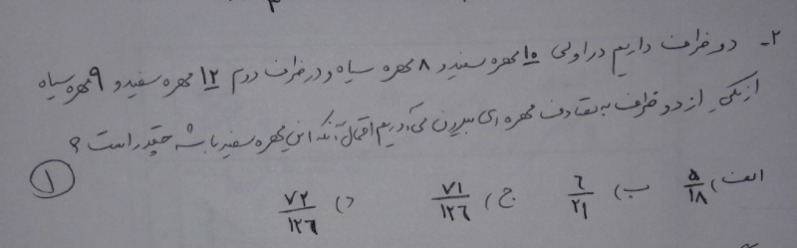 ۲- دو ظرف داریم در اولی ۱۰ مهره سفید و ۸ مهره سیاه و در ظرف دوم ۱۲ مهره سفید و ۹ مهره سیاه
از یکی از دو ظرف به تصادف مهره ای بیرون می آوریم احتمال آنکه این مهره سفید باشد چقدر است ؟
الف) ۵/۱۸ ب) ۶/۲۱ ج) ۷۱/۱۲۶ د) ۷۲/۱۲۶
۱